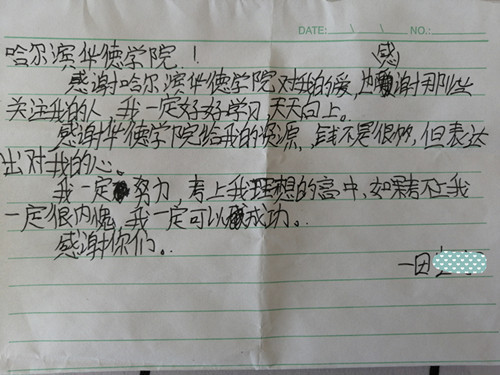 DATE: NO.:
哈尔滨华德学院！
感
感谢哈尔滨华德学院对我的爱，也谢那些
关注我的人，我一定好好学习，天天向上。
感谢华德学院给我的资源，钱不是很多，但表达
出对我的心。
我一定努力，考上我理想的高中，如果考不上我
一定很内愧，我一定可以成功。
感谢你们。